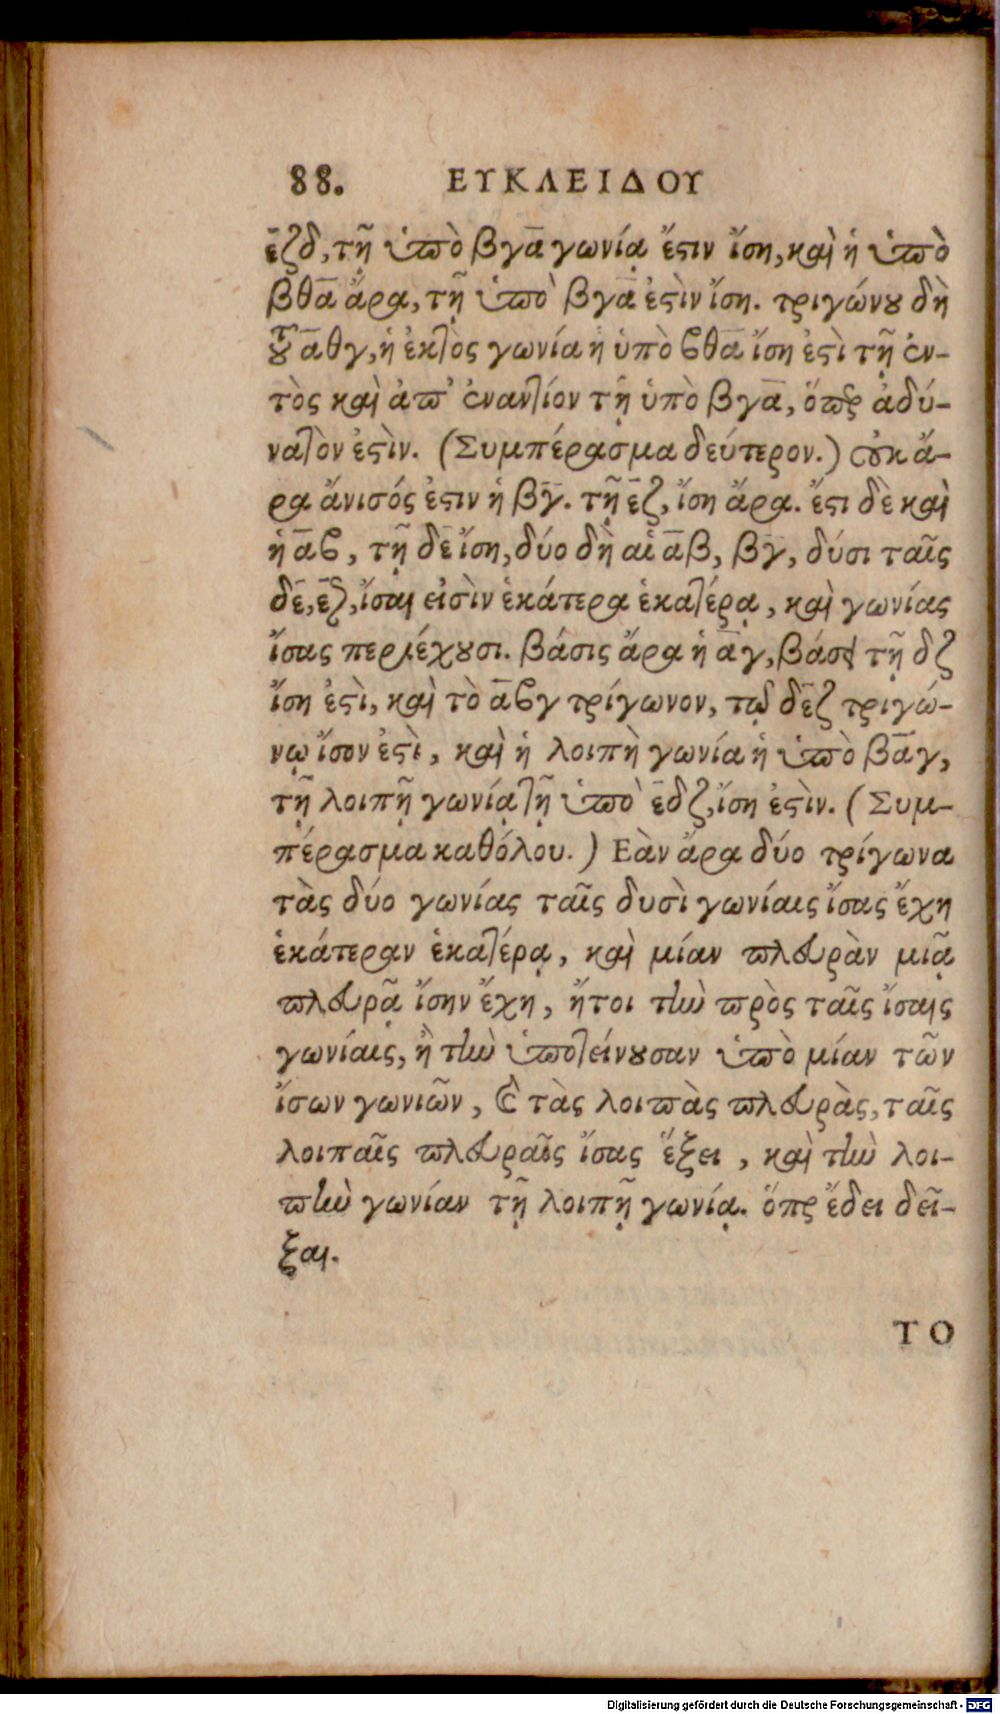 88. ΕΥΚΛΕΙΔΟΥ
ε̅ζδ, τῇ ὑπὸ βγα̅ γωνίᾳ ἔϛιν ἴση, καὶ ἡ ὑπὸ
βθα̅ ἄρα, τῇ ὑπὸ βγα̅ ἐϛὶν ἴση. τριγώνȣ δὴ
τȣ͂ α̅θγ, ἡ ἐκτὸς γωνία ἡ ὑπὸ ϐθα̅ ἴση ἐϛὶ τῇ ἐν-
τὸς καὶ ἀπ' ἐναντίον τῇ ὑπὸ βγα̅, ὅπερ ἀδύ-
νατὸν ἐϛὶν. (Συμπέρασμα δεύτερον.) οὐκ ἄ-
ρα ἄνισός ἐϛιν ἡ βγ̅. τῇ ε̅ζ, ἴση ἄρα. ἔϛι δὲ καὶ
ἡ α̅ϐ, τῇ δε̅ ἴση, δύο δὴ αἱ α̅β, βγ̅, δύσι ταῖς
δε̅, ε̅ζ, ἴσαι εἰσὶν ἑκάτερα ἑκατέρᾳ, καὶ γωνίας
ἴσας περιέχȣσι. βάσις ἄρα ἡ α̅γ, βάσει τῇ δζ
ἴση ἐϛὶ, καὶ τὸ α̅ϐγ τρίγωνον, τῷ δε̅ζ τριγώ-
νῳ ἴσον ἐϛὶ, καὶ ἡ λοιπὴ γωνία ἡ ὑπὸ βα̅γ,
τῇ λοιπῇ γωνίᾳ τῇ ὑπὸ ε̅δζ, ἴση ἐϛὶν. (Συμ-
πέρασμα καθόλου.) Εὰν ἄρα δύο τρίγωνα
τὰς δύο γωνίας ταῖς δυσὶ γωνίαις ἴσας ἔχη
ἑκάτεραν ἑκατέρᾳ, καὶ μίαν πλευρὰν μιᾷ
πλευρᾷ ἴσην ἔχη, ἤτοι τὴν πρὸς ταῖς ἴσαις
γωνίαις, ἢ τὴν ὑποτείνȣσαν ὑπὸ μίαν τῶν
ἴσων γωνιῶν, ϗ̀ τὰς λοιπὰς πλευρὰς, ταῖς
λοιπαῖς πλευραῖς ἴσας ἕξει, καὶ τὴν λοι-
πὴν γωνίαν τῇ λοιπῇ γωνίᾳ. ὅπερ ἔδει δεῖ-
ξαι.
ΤΟ
Digitalisierung gefördert durch die Deutsche Forschungsgemeinschaft - DFG